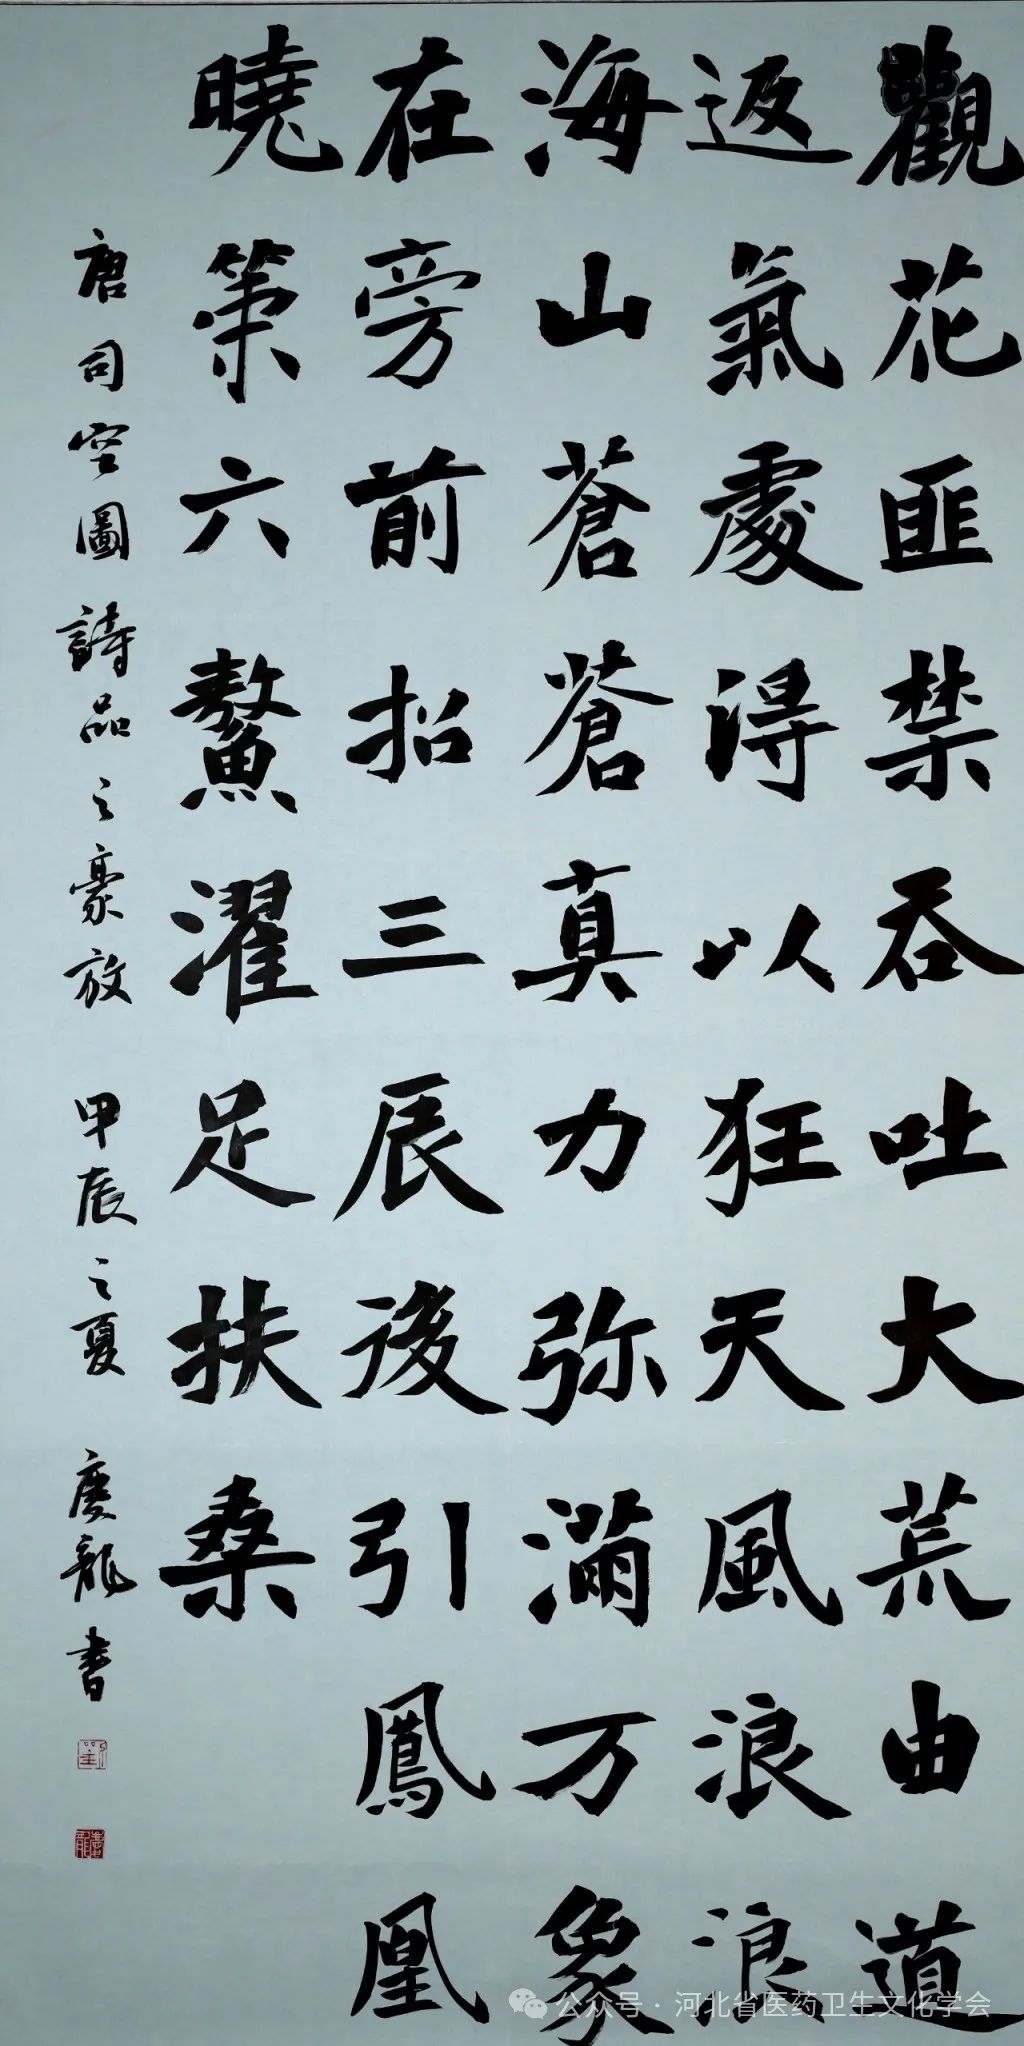 觀花匪禁吞吐大荒由道
返氣處得以狂天風浪浪
海山蒼蒼真力弥滿万象
在旁前招三辰後引鳳凰
曉策六鰲濯足扶桑
唐司空圖詩品之豪放 甲辰之夏 慶龍書
公众号·河北省医药卫生文化学会